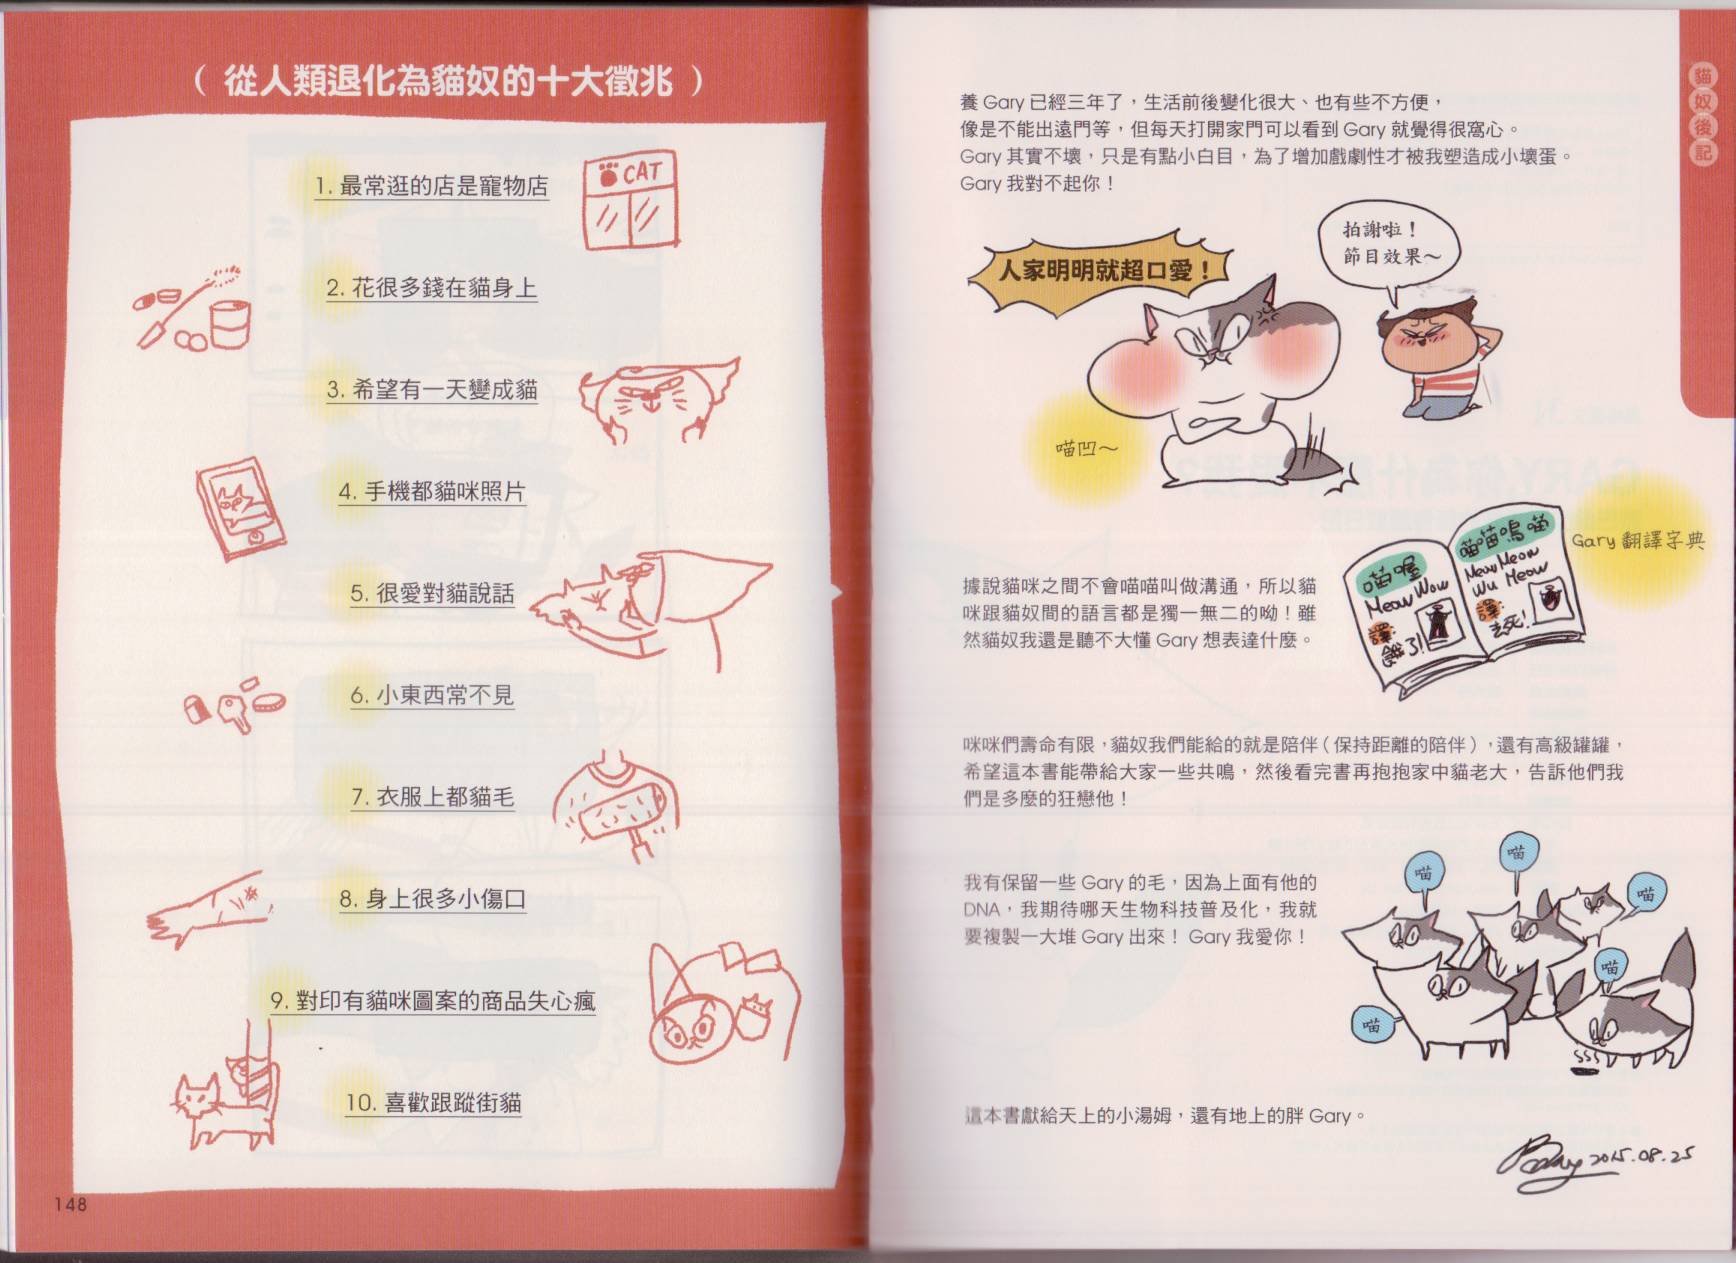 （ 從人類退化為貓奴的十大徵兆 ）
1. 最常逛的店是寵物店
CAT
2. 花很多錢在貓身上
3. 希望有一天變成貓
4. 手機都貓咪照片
5. 很愛對貓說話
6. 小東西常不見
7. 衣服上都貓毛
8. 身上很多小傷口
9. 對印有貓咪圖案的商品失心瘋
10. 喜歡跟蹤街貓
148
貓奴後記
養 Gary 已經三年了，生活前後變化很大、也有些不方便，
像是不能出遠門等，但每天打開家門可以看到 Gary 就覺得很窩心。
Gary 其實不壞，只是有點小白目，為了增加戲劇性才被我塑造成小壞蛋。
Gary 我對不起你！
人家明明就超口愛！
拍謝啦！
節目效果～
喵凹～
Gary 翻譯字典
喵喔
Meow Wow
譯:
餓了!
喵喵嗚喵
Meow Meow
Wu Meow
譯:
去死!
據說貓咪之間不會喵喵叫做溝通，所以貓
咪跟貓奴間的語言都是獨一無二的呦！雖
然貓奴我還是聽不大懂 Gary 想表達什麼。
咪咪們壽命有限，貓奴我們能給的就是陪伴（保持距離的陪伴），還有高級罐罐，
希望這本書能帶給大家一些共鳴，然後看完書再抱抱家中貓老大，告訴他們我
們是多麼的狂戀他！
我有保留一些 Gary 的毛，因為上面有他的
DNA，我期待哪天生物科技普及化，我就
要複製一大堆 Gary 出來！ Gary 我愛你！
喵
喵
喵
喵
喵
這本書獻給天上的小湯姆，還有地上的胖 Gary。
2015.08.25